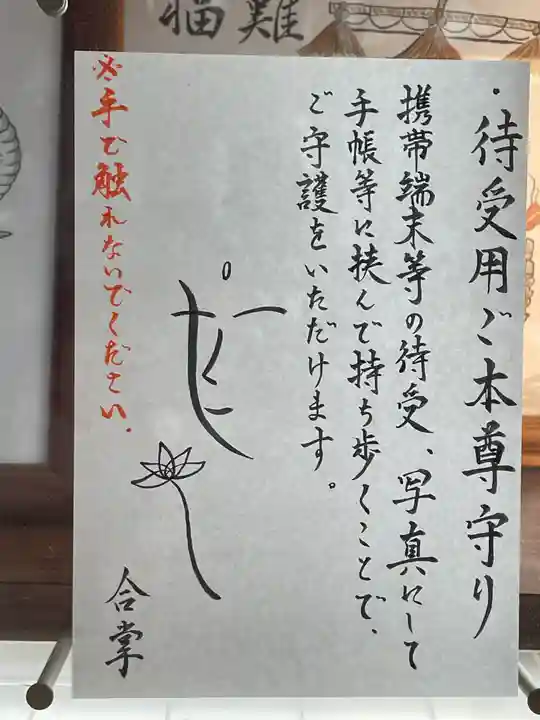 ・待受用ご本尊守り
携帯端末等の待受、写真にして
手帳等に挟んで持ち歩くことで、
ご守護をいただけます。
※手ひ触れないでください.
合掌
難
福